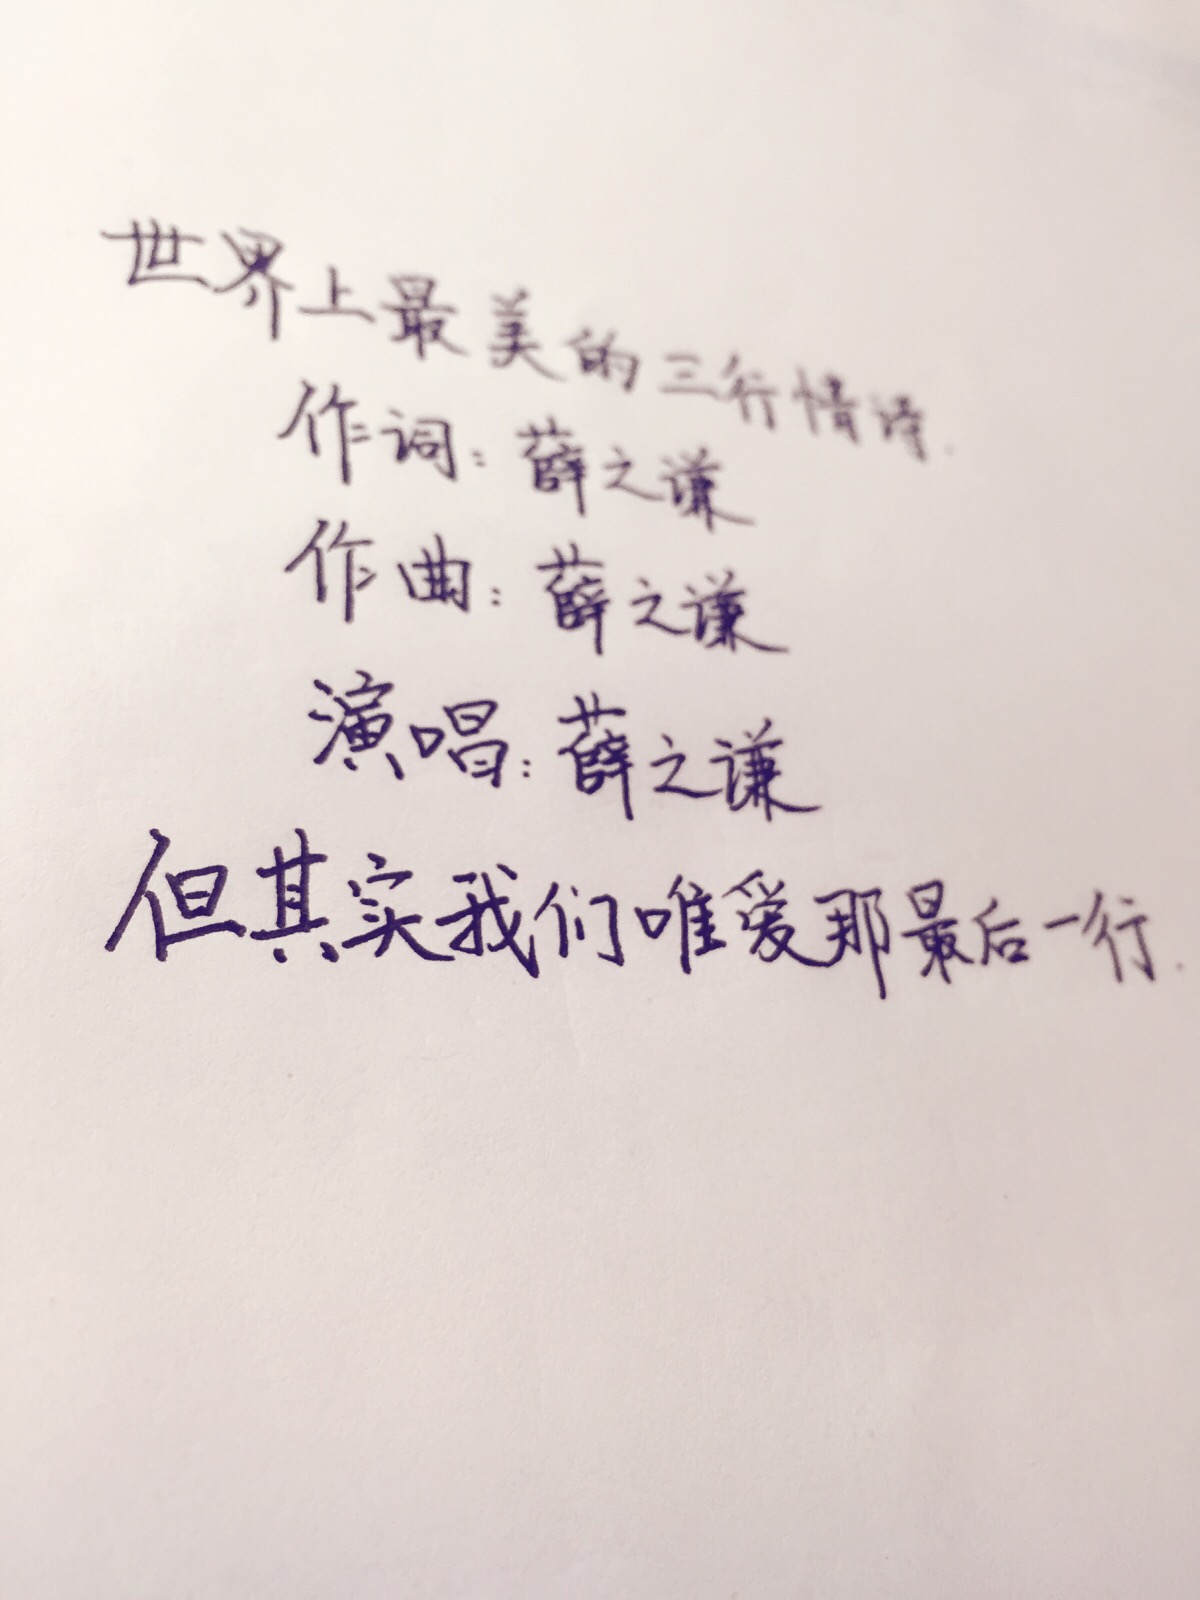 世界上最美的三行情诗.
作词：薛之谦
作曲：薛之谦
演唱：薛之谦
但其实我们唯爱那最后一行.